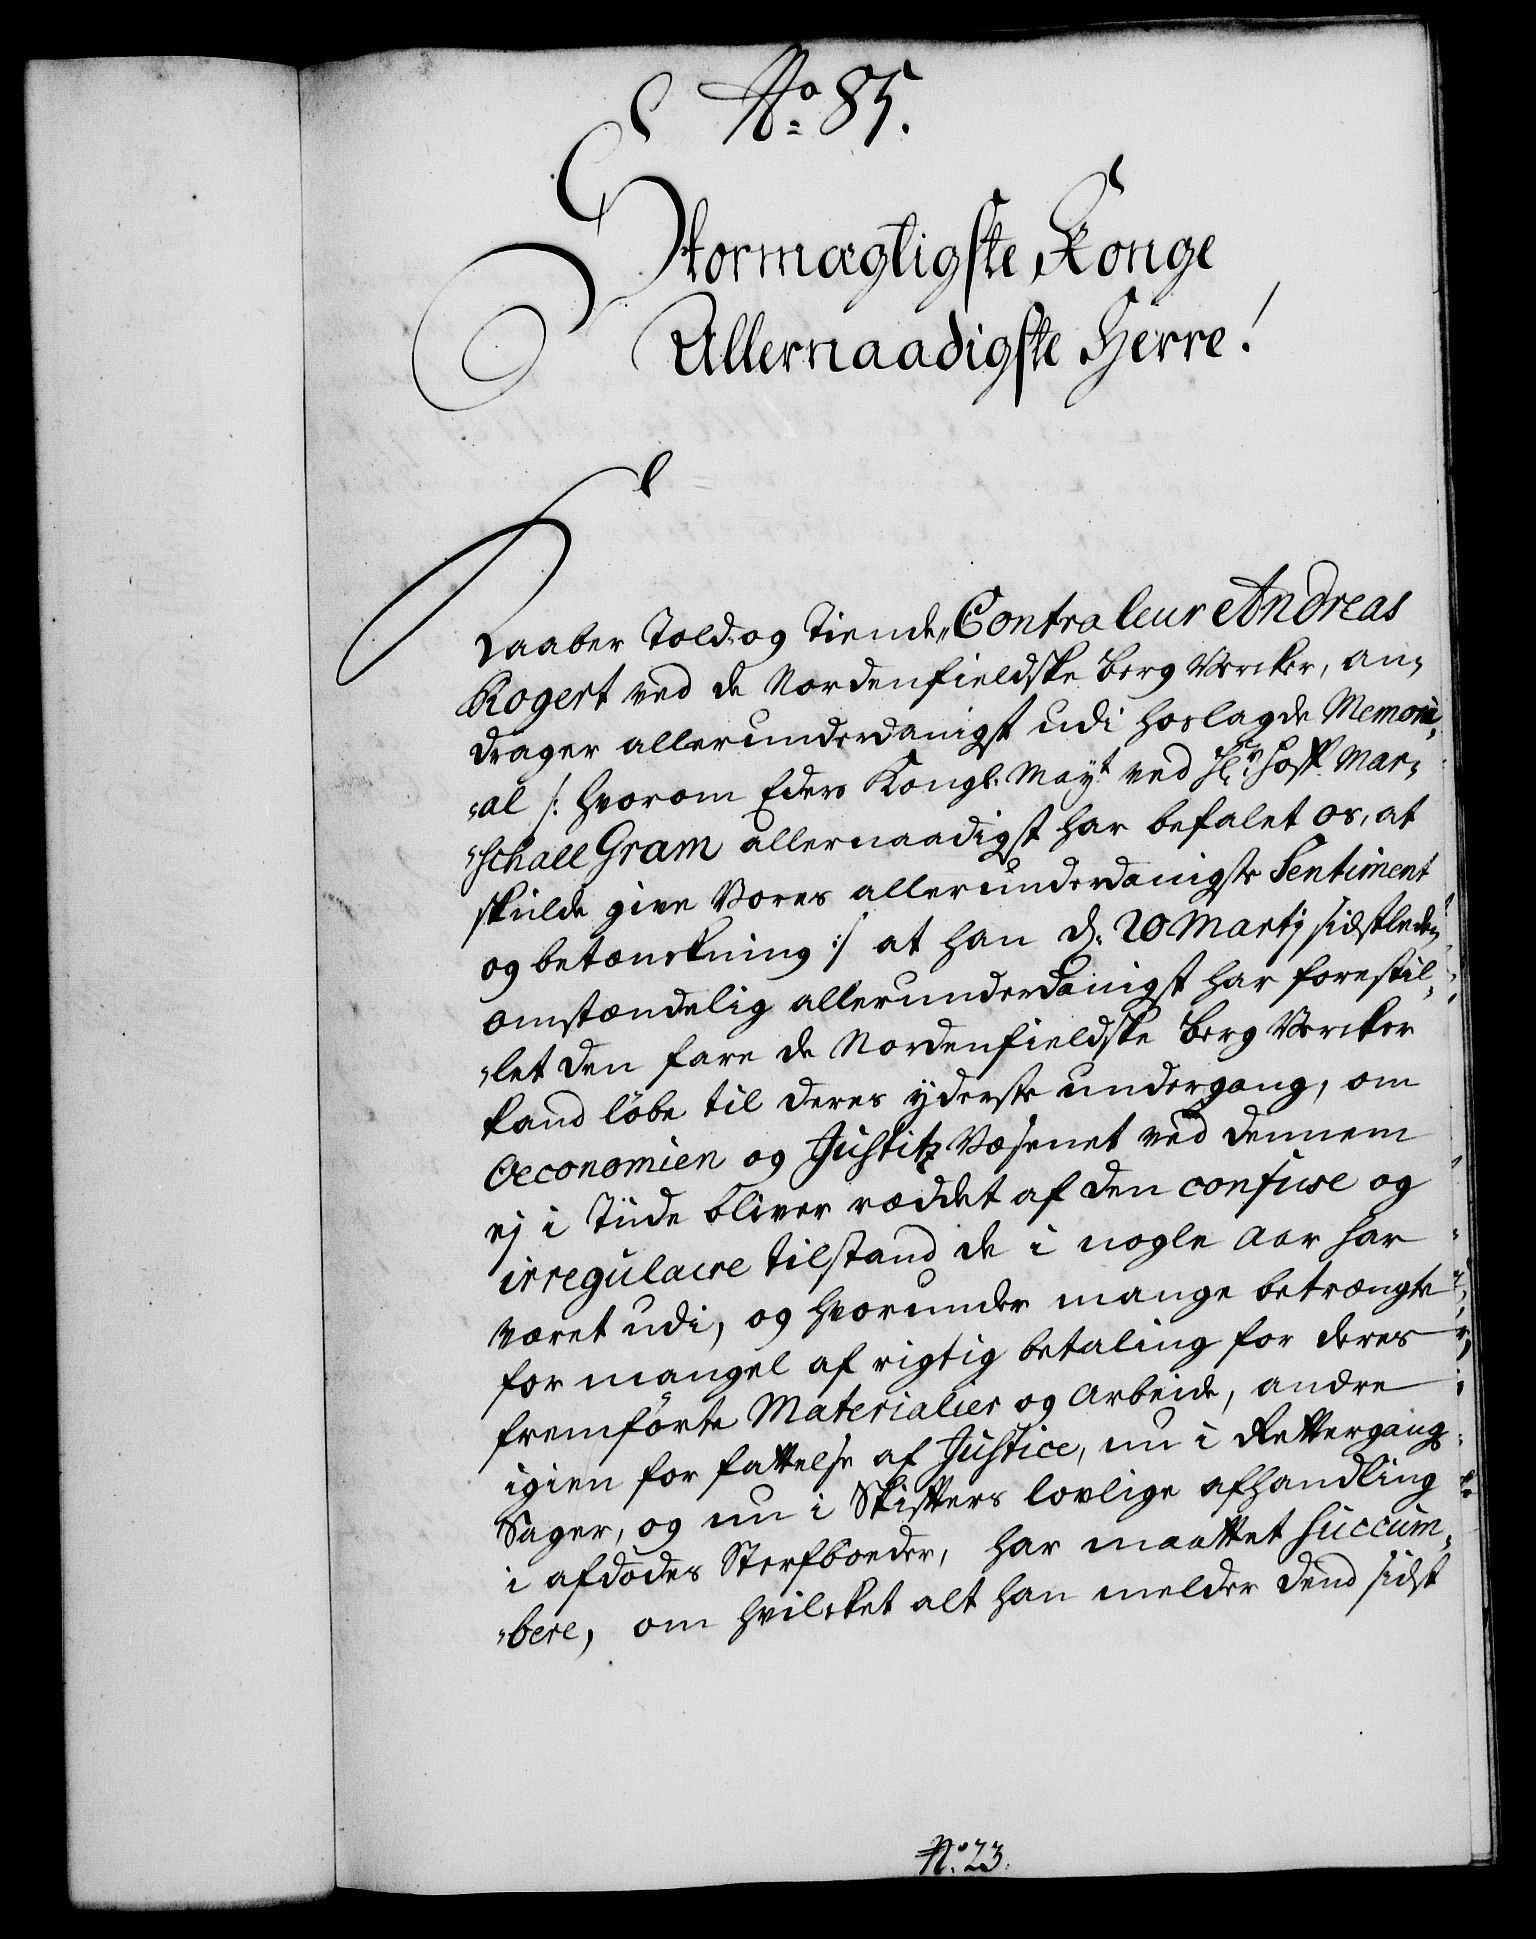 No. 85.
Stormægtigste Konge
Allernaadigste Herre!
Kaaber Told og Tiende Contraleur Andreas
Rogert ved de Nordenfieldske Berg Vercker, an„
drager allerunderdanigst udi hoslagde Memori„
„al /: hvorom Eders Kongl. Mayt ved Hr. Hoff Mar„
„schall Gram allernaadigst har befalet os, at
skulde give Vores allerunderdanigste Sentiment
og betænckning :/ at han d. 20 Martij sidstleden
omstændelig allerunderdanigst har forestil„
„let den fare de Nordenfieldske Berg Vercker
kand löbe til deres yderste undergang, om
Oeconomien og Justitz Væsenet ved dennem
ej i Tiide bliver reddet af den confuse og
irregulaire tilstand de i nogle Aar har
været udi, og hvorunder mange betrængte
for mangel af rigtig betaling for deres
fremförte Materialier og Arbeide, andre
igien for fattelse af Justice, nu i Rettergangs
Sager, og nu i Skifters lovlige afhandling
i afdödes Sterfboeder, har maattet succum„
„bere, om hvilcket alt han melder dend sidst
No. 23.